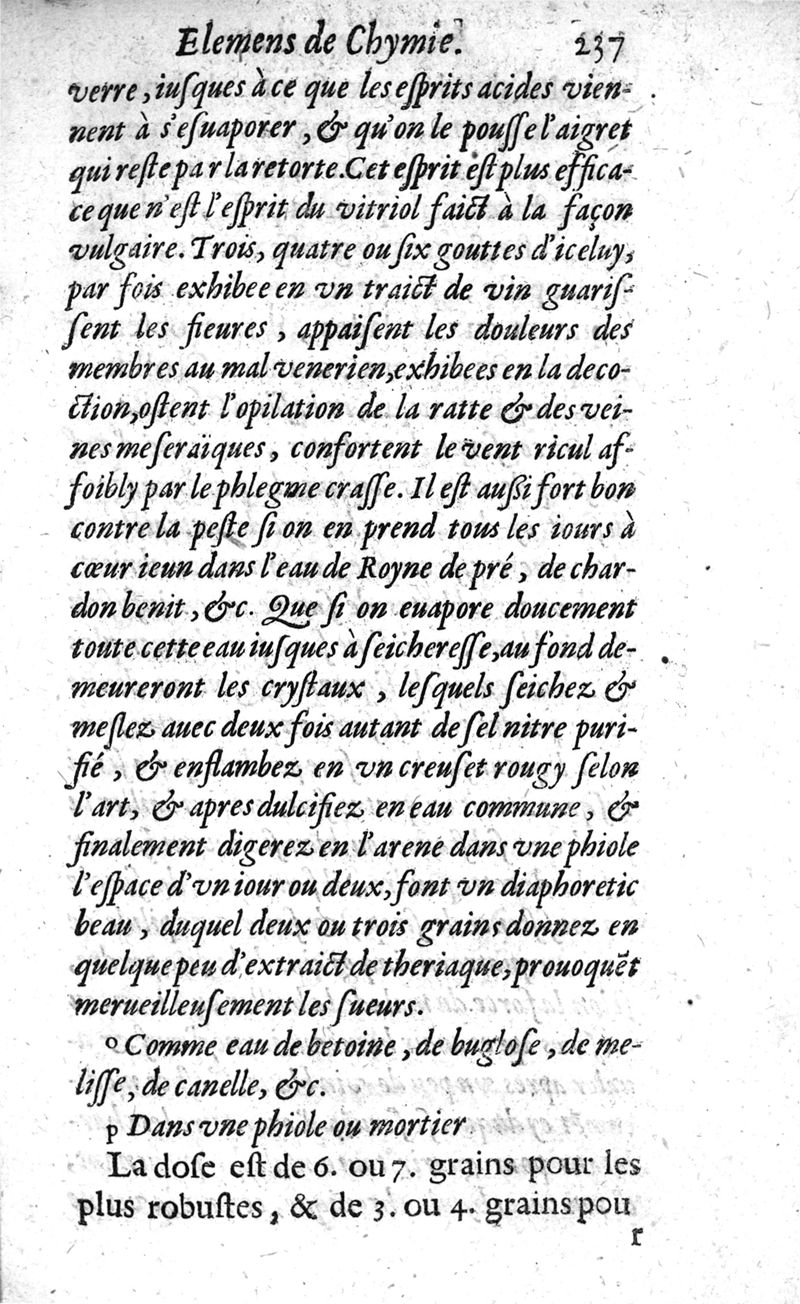 Elemens de Chymie. 237
verre, iuſques à ce que les eſprits acides vien-
nent à s'eſuaporer, & qu'on le pouſſe l'aigret
qui reſte par la retorte. Cet eſprit eſt plus effica-
ce que n'eſt l'eſprit du vitriol faict à la façon
vulgaire. Trois, quatre ou ſix gouttes d'iceluy,
par fois exhibee en vn traict de vin guariſ-
ſent les fieures, appaiſent les douleurs des
membres au mal venerien, exhibees en la deco-
ction, oſtent l'opilation de la ratte & des vei-
nes meſeraïques, confortent le vent ricul af-
foibly par le phlegme craſſe. Il eſt außi fort bon
contre la peſte ſi on en prend tous les iours à
cœur ieun dans l'eau de Royne de pré, de char-
don benit, &c. Que ſi on euapore doucement
toute cette eau iuſques à ſeichereſſe, au fond de-
meureront les cryſtaux, leſquels ſeichez &
meſlez auec deux fois autant de ſel nitre puri-
fié, & enflambez en vn creuſet rougy ſelon
l'art, & apres dulcifiez en eau commune, &
finalement digerez en l'arene dans vne phiole
l'eſpace d'vn iour ou deux, font vn diaphoretic
beau, duquel deux ou trois grains donnez en
quelque peu d'extraict de theriaque, prouoquẽt
merueilleuſement les ſueurs.
o Comme eau de betoine, de bugloſe, de me-
liſſe, de canelle, &c.
p Dans vne phiole ou mortier
La doſe eſt de 6. ou 7. grains pour les
plus robuſtes, & de 3. ou 4. grains pou
r